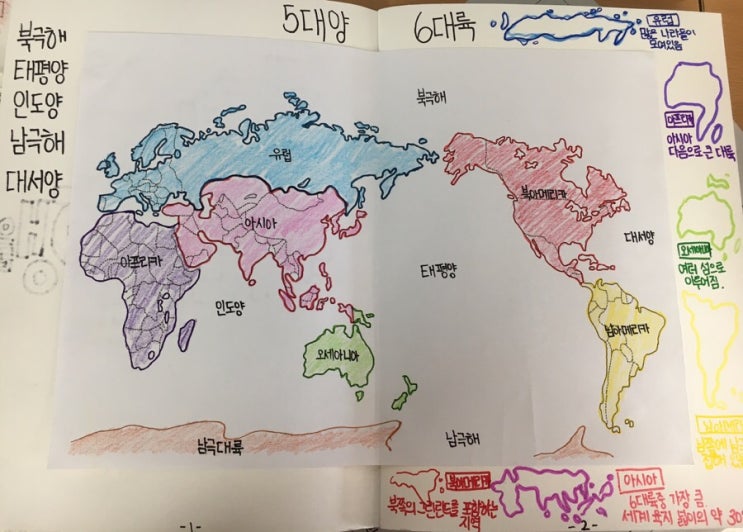 5대양 6대륙
북극해
태평양
인도양
남극해
대서양
북극해
유럽
아시아
아프리카
인도양
태평양
오세아니아
남극대륙
남극해
북아메리카
대서양
남아메리카
유럽
많은 나라들이
모여있음
아프리카
아시아
다음으로 큰 대륙
오세아니아
여러 섬으로
이루어짐.
남아메리카
북쪽에
북아메리카
북쪽의 그린란드를 포함하는
지역
아시아
6대륙중 가장 큼.
세계 육지 넓이의 약 30%
-1-
-2-